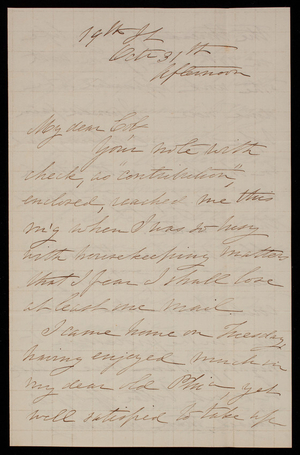 19th St
Oct 31st
Afternoon
My dear Col.
Your note with
check, as "contribution",
enclosed, reached me this
m'g when I was so busy
with housekeeping matters
that I fear I shall lose
at least one mail.
I came home on Tuesday,
having enjoyed much in
my dear old Phila, yet
well satisfied to take up